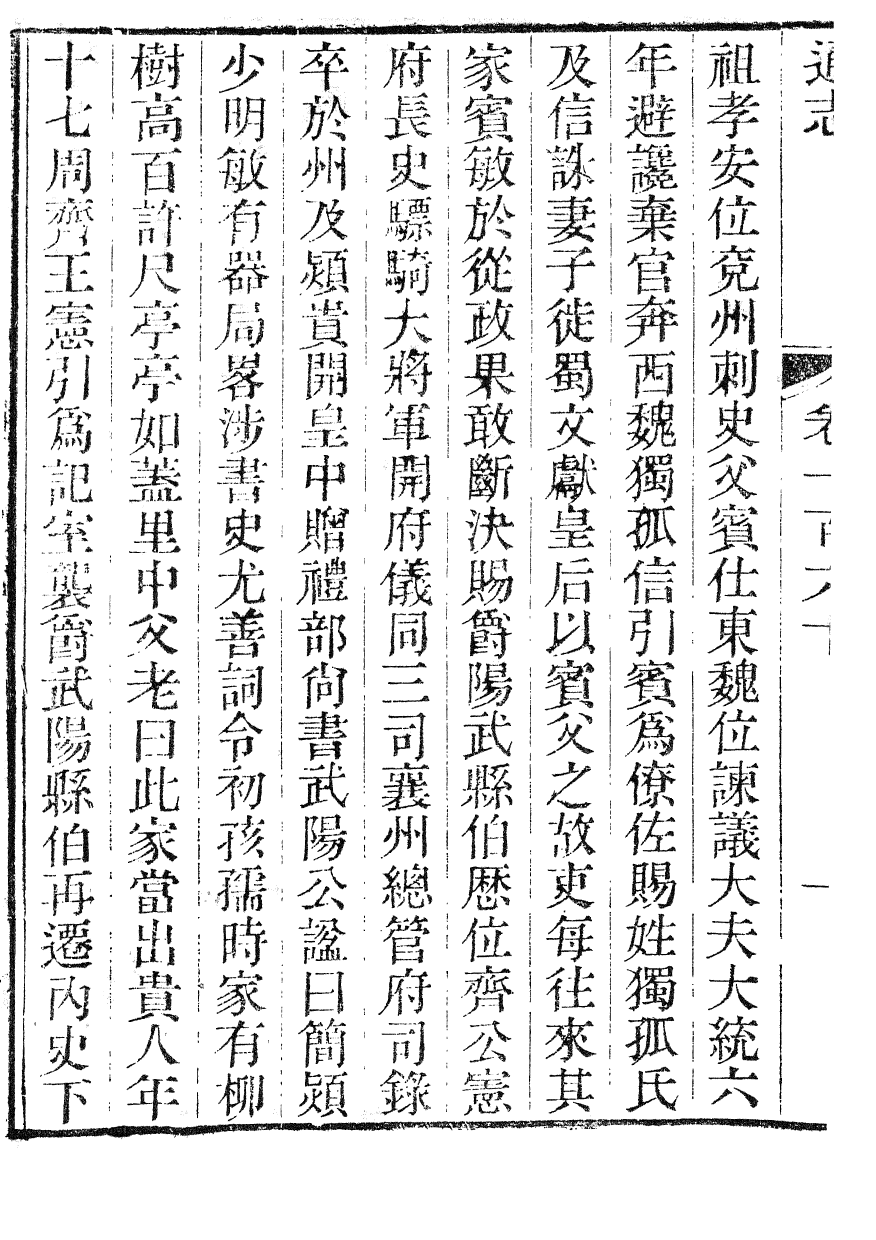 通志 卷一百六十 一
祖孝安位兗州刺史父賓仕東魏位諫議大夫大統六
年避讒棄官奔西魏獨孤信引賓爲僚佐賜姓獨孤氏
及信誅妻子徙蜀文獻皇后以賓父之故吏每往來其
家賓敏於從政果敢斷決賜爵陽武縣伯歷位齊公憲
府長史驃騎大將軍開府儀同三司襄州總管府司錄
卒於州及熲貴開皇中贈禮部尙書武陽公諡曰簡熲
少明敏有器局畧涉書史尤善詞令初孩孺時家有柳
樹高百許尺亭亭如蓋里中父老曰此家當出貴人年
十七周齊王憲引爲記室襲爵武陽縣伯再遷內史下